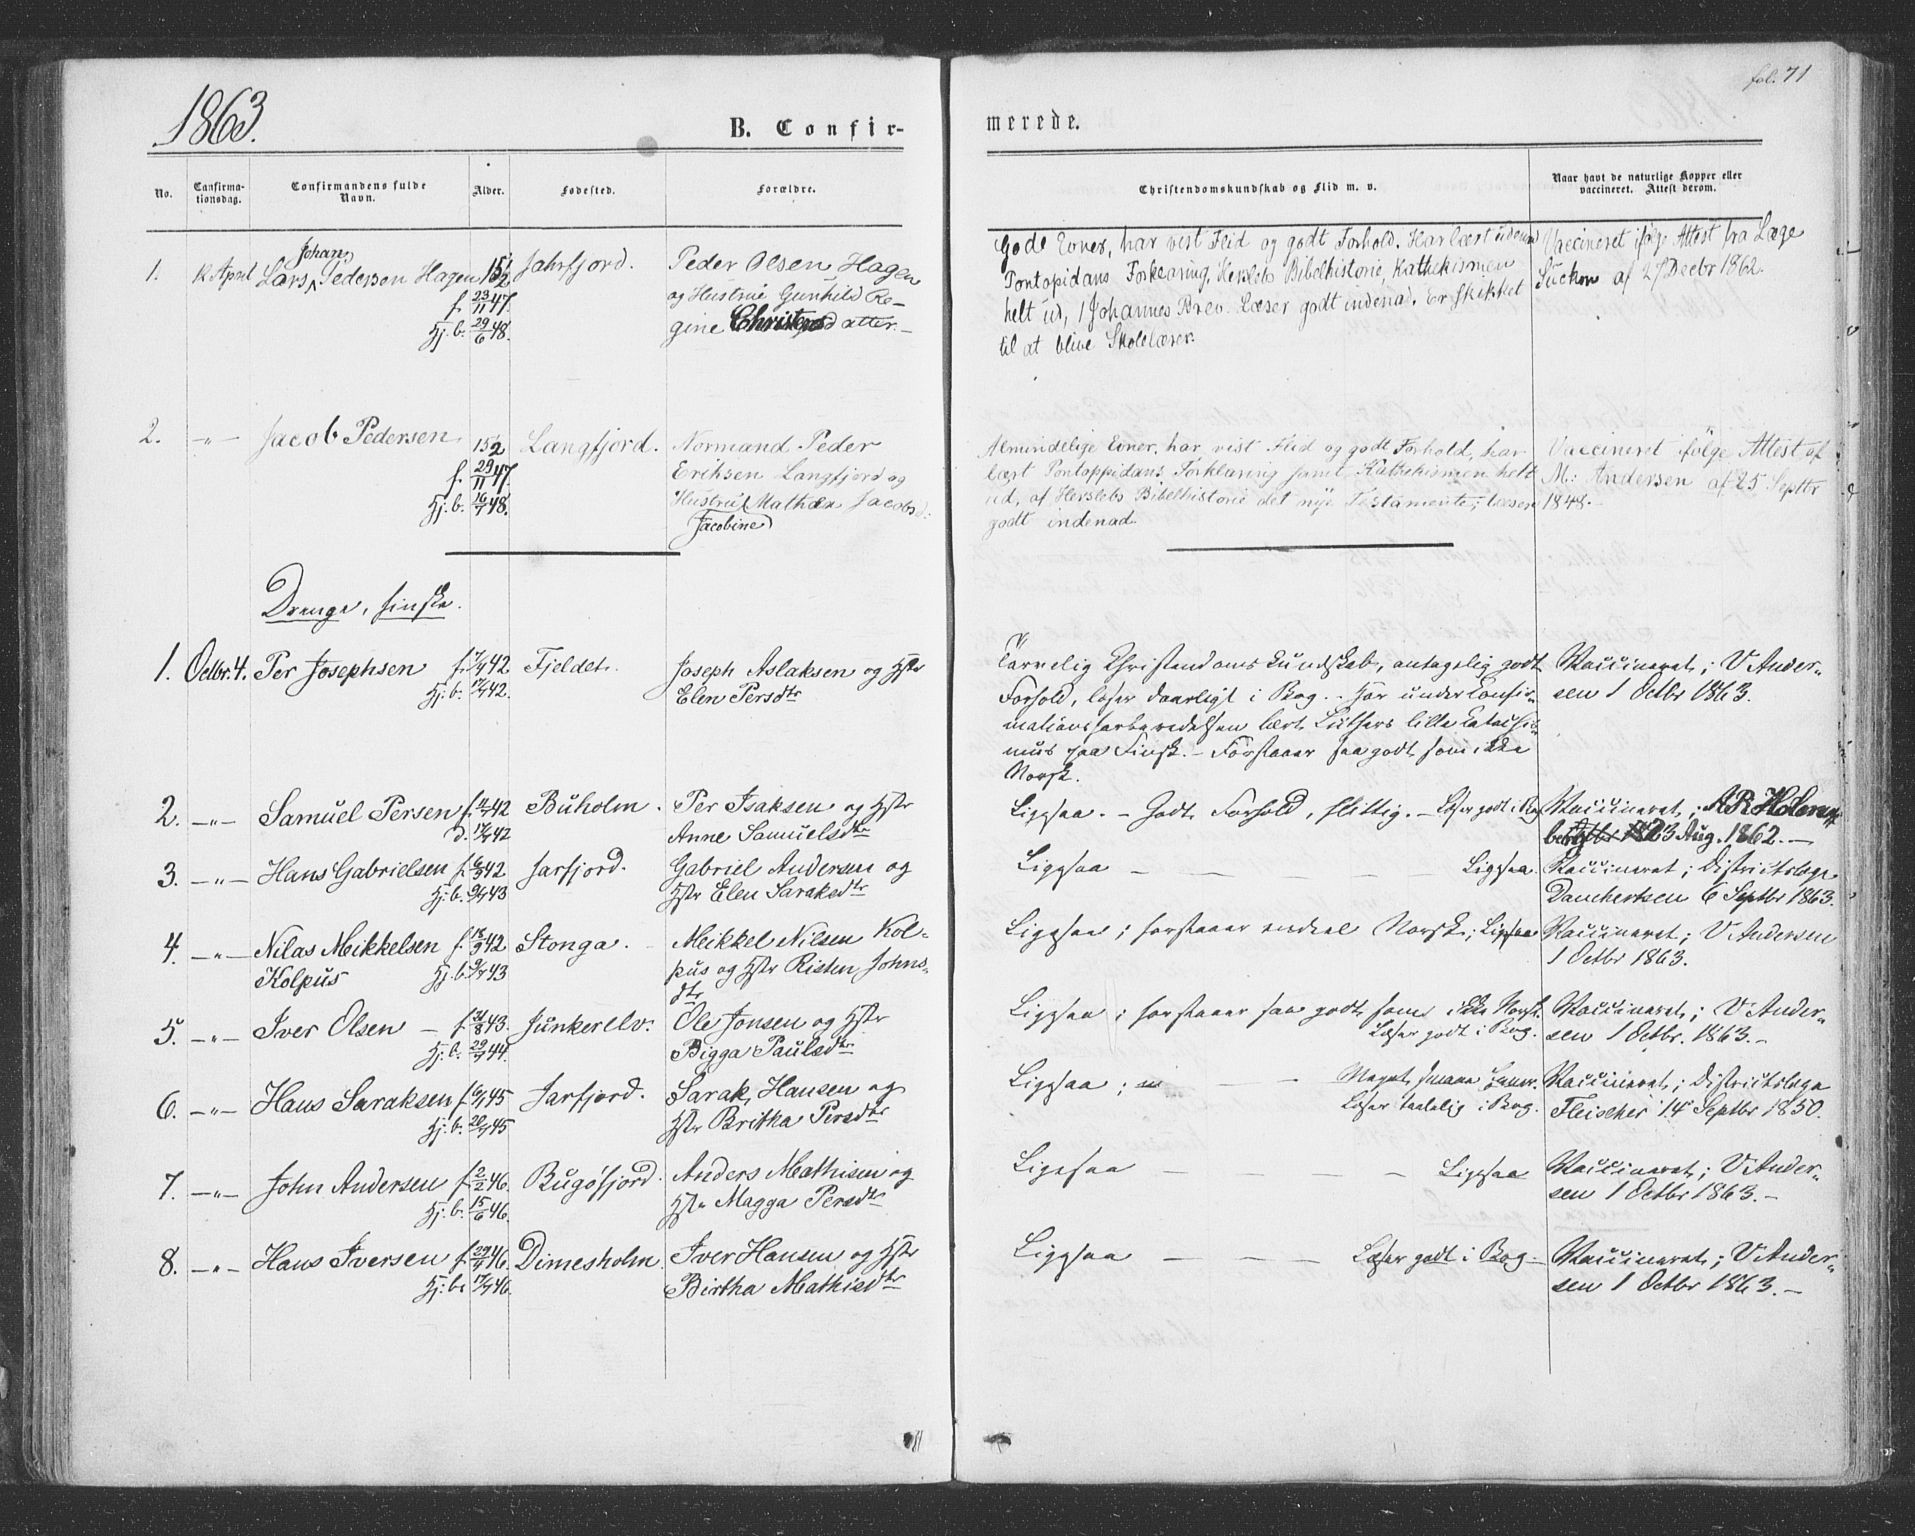 fol. 71
1863.
B. Confir-
merede.
No.
Confirma-
tionsdag.
Confirmandens fulde
Navn.
Alder.
Fødested.
Forældre.
Christendomskundskab og Flid m. v.
Naar havt de naturlige Kopper eller
vaccineret. Attest derom.
Johan
1. 12 April Lars Pedersen Hagen 15½ Jahrfjord. Peder Olsen Hagen
f. 23/11 47. og Hustrue Gunhild Re-
Hj. b. 29/6 48. gine Christensdatter.
Gode Evner, har vist Flid og godt Forhold. Har lært udenad
Pontopidans Forklaring, Herslebs Bibelhistorie, Kathekismen
helt ud, 1 Johannes Brev. Læser godt indenad. Er skikket
til at blive Skolelærer.
Vaccineret ifølge Attest fra Læge
Suckow af 27 Decbr 1862.
2. -"- Jacob Pedersen 15½ Langfjord. Normand Peder
f. 29/11 47. Eriksen Langfjord og
Hj. b. 16/ 48. Hustrue Mathea Jacobsd:
(Jacobine)
Almindelige Evner, har vist Flid og godt Forhold, har
lært Pontoppidans Forklaring samt Kathekismen helt
ud, af Herslebs Bibelhistorie det nye Testamente; læser
godt indenad.
Vaccineret ifølge Attest af
M: Andersen af 25 Septbr
1848.-
Drenge, finske.
1. Octbr. 4. Per Josephsen f. 42 Fjeldet. Joseph Aslaksen og Hstr
Hj. b. 42. Elen Persdtr
Tarvelig Christendomskundskab, antagelig godt
Forhold, læser daarligt i Bog. - Har under Confir-
mationsforberedelsen lært Luthers lille Catechis-
mus paa Finsk. - Forstaaer saa godt som ikke
Norsk.
Vaccineret; V Ander-
sen 1 Octbr 1863.
2. -"- Samuel Persen f. 42 Buholm. Per Isaksen og Hstr
D. 42 Anne Samuelsdtr
Ligesaa. - Godt Forhold, flittig. - Læser godt i Bog
Vaccineret; A R Holm
23 Aug. 1862. -
3. -"- Hans Gabrielsen f. 42 Jarfjord. Gabriel Andersen og
Hj. b. 43 Hstr Elen Saraksdtr
Ligesaa - - - - - Ligesaa.
Vaccineret; Districtslæge
Danchertsen 6 Septbr 1863.
4. -"- Nilas Meikkelsen f. 42 Stonga. Meikkel Nilsen Kol-
Kolpus Hj. b. 43 pus og Hstr Risten Johns-
dtr
Ligesaa; forstaaer endeel Norsk; Ligesaa
Vaccineret; V Andersen
1 Octbr 1863.
5. -"- Iver Olsen - f. 31/8 43. Junkerelv. Ole Jonsen og Hstr
Hj. b. 29/ 44. Bigga Paulsdtr
Ligesaa; forstaaer saa godt som ikke Norsk.
Læser godt i Bog.
Vaccineret; V Ander-
sen 1 Octbr. 1863. -
6. -"- Hans Saraksen f. 45 Jarfjord. Sarak Hansen og
Hj. b. 20/ 45 Hstr Britha Persdtr
Ligesaa; - Meget smaae Evner.
Læser taalelig i Bog.
Vaccineret; Districtslæge
Fleischer 14 Septbr 1850.
7. -"- John Andersen f. 2/2 46. Bugøfjord. Anders Mathisen og
Hj. b. 15/6 46. Hstr Magga Persdtr
Ligesaa - - - - Ligesaa
Vaccineret; V Ander-
sen 1 Octbr 1863. -
8. -"- Hans Iversen f. 46. Dimesholm. Iver Hansen og Hstr
Hj. b. 46. Birtha Mathisdtr
Ligesaa - - - Læser godt i Bog -
Vaccineret; V Ander-
sen 1 Octbr 1863. -